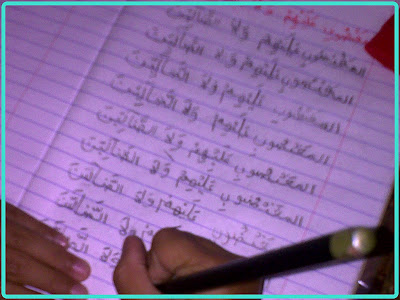 مَغْضُوبِ عَلَيْهِمْ وَلَا
المَغْضُوبِ عَلَيْهِمْ وَلَا الضَّالِّينَ
المَغْضُوبِ عَلَيْهِمْ وَلَا الضَّالِّينَ
المَغْضُوبِ عَلَيْهِمْ وَلَا الضَّالِّينَ
المَغْضُوبِ عَلَيْهِمْ وَلَا الضَّالِّينَ
المَغْضُوبِ عَلَيْهِمْ وَلَا الضَّالِّينَ
المَغْضُوبِ عَلَيْهِمْ وَلَا الضَّالِّينَ
مَغْضُوبِ عَلَيْهِمْ وَلَا الضَّالِّينَ
وَلَا الضَّالِّينَ